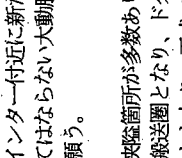 インター付近に新た
てはならない大動脈
願う。
狭隘箇所が多数あり
搬送圏となり、ドク